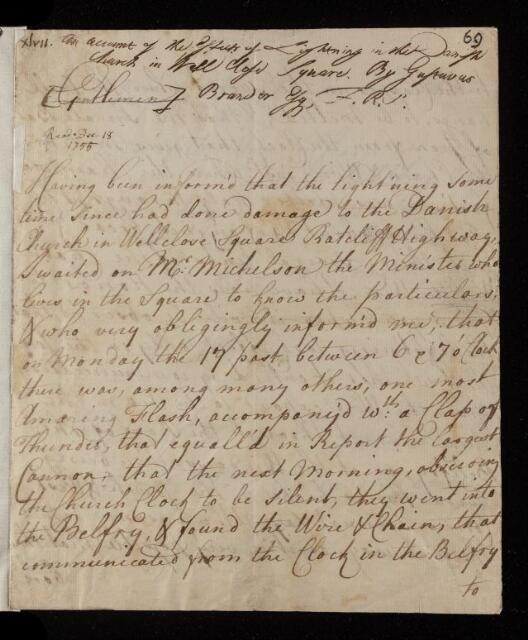 69
xlvii. An account of the Effects of Lightning in the Danish
Church in Well Close Square. By Gustavus
[Gentlemen] Brander Esq. F.R.S.
Read Dec 18
1755
Having been inform'd that the lightning some
time since had done damage to the Danish
Church in Wellclose Square Ratcliff Highway,
I waited on Mr. Michelson the Minister who
lives in the Square to know the particulars,
& who very obligingly inform'd me, that
on Monday the 17 past between 6 & 7 o'Clock
there was, among many others, one most
Amazing Flash, accompany'd wth. a Clap of
Thunder, that equall'd in Report the largest
Cannon, that the next Morning, observing
the Church Clock to be silent, they went into
the Belfry, & found the Wire & Chain, that
communicated from the Clock in the Belfry
to